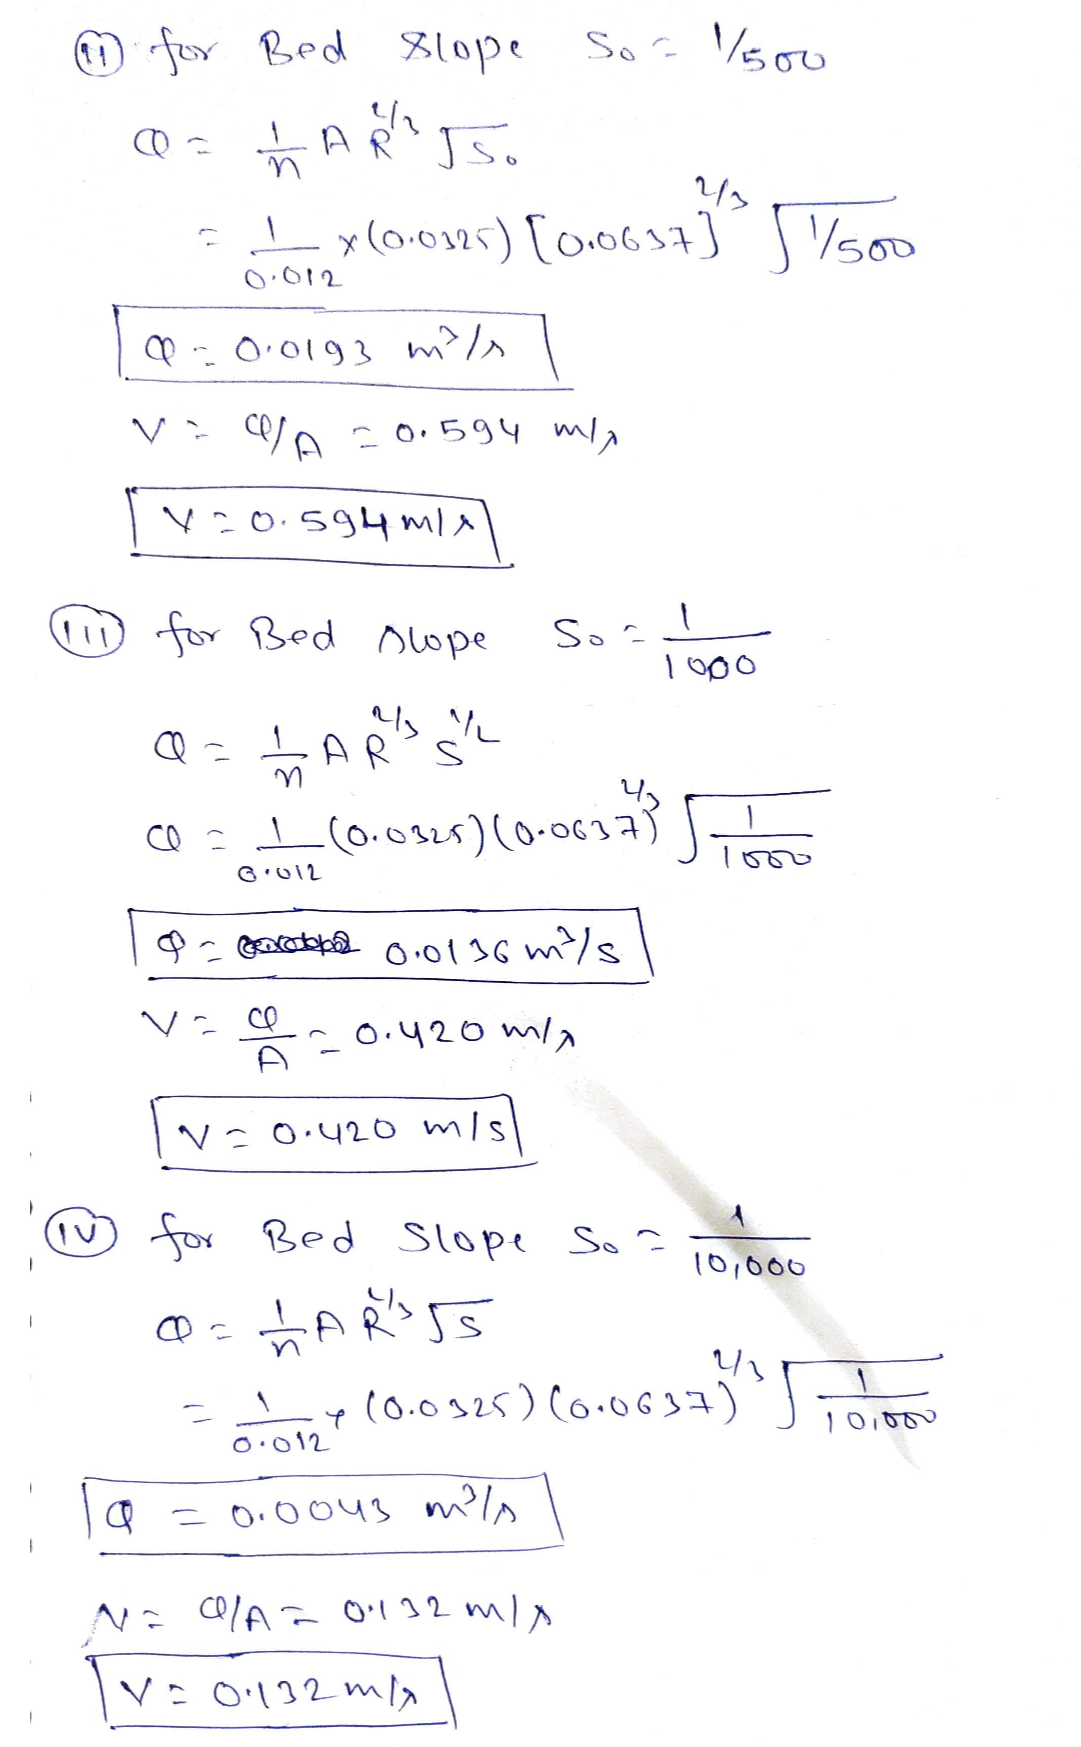 (ii) for Bed Slope So = 1/500
Q = 1/n A R^2/3 √So
= 1/0.012 × (0.0325) [0.0637]^2/3 √1/500
Q = 0.0193 m³/s
V = Q/A = 0.594 m/s
V = 0.594 m/s
(iii) for Bed slope So = 1/1000
Q = 1/n A R^2/3 S^1/2
Q = 1/0.012 (0.0325) (0.0637)^2/3 √1/1000
Q = 0.0136 m³/s
V = Q/A = 0.420 m/s
V = 0.420 m/s
(iv) for Bed Slope So = 1/10,000
Q = 1/n A R^2/3 √S
= 1/0.012 × (0.0325) (0.0637)^2/3 √1/10,000
Q = 0.0043 m³/s
V = Q/A = 0.132 m/s
V = 0.132 m/s